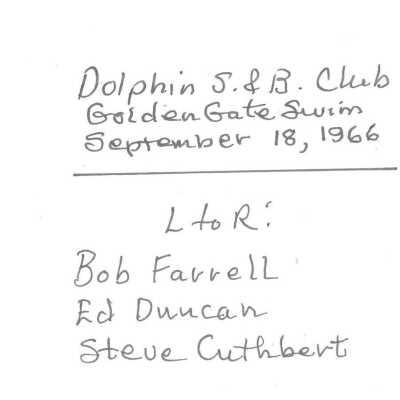 Dolphin S. & B. Club
Golden Gate Swim
September 18, 1966
L to R:
Bob Farrell
Ed Duncan
Steve Cuthbert